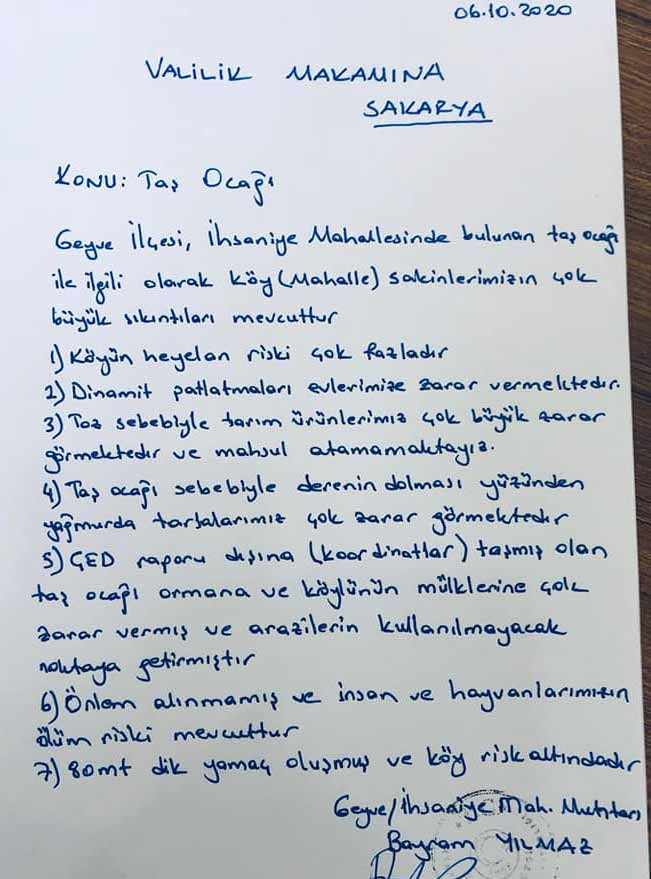 06.10.2020
VALİLİK MAKAMINA
SAKARYA
KONU: Taş Ocağı
Geyve İlçesi, İhsaniye Mahallesinde bulunan taş ocağı
ile ilgili olarak köy (Mahalle) sakinlerimizin çok
büyük sıkıntıları mevcuttur
1) Köyün heyelan riski çok fazladır
2) Dinamit patlatmaları evlerimize zarar vermektedir.
3) Toz sebebiyle tarım ürünlerimiz çok büyük zarar
görmektedir ve mahsul atamamaktayız.
4) Taş ocağı sebebiyle derenin dolması yüzünden
yağmurda tarlalarımız çok zarar görmektedir
5) ÇED raporu dışına (koordinatlar) taşmış olan
taş ocağı ormana ve köylünün mülklerine çok
zarar vermiş ve arazilerin kullanılmayacak
noktaya getirmiştir
6) Önlem alınmamış ve insan ve hayvanlarımızın
ölüm riski mevcuttur
7) 80mt dik yamaç oluşmuş ve köy risk altındadır
Geyve/İhsaniye Mah. Muhtarı
Bayram YILMAZ